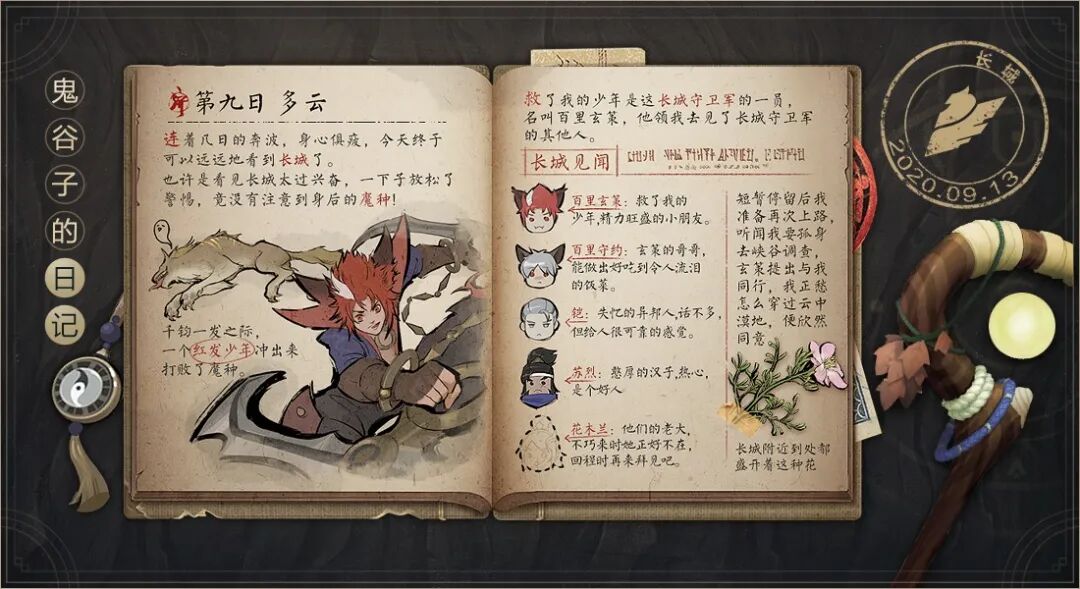 鬼谷子的日记
第九日 多云
连着几日的奔波，身心俱疲，今天终于
可以远远地看到长城了。
也许是看见长城太过兴奋，一下子放松了
警惕，竟没有注意到身后的魔神!
千钧一发之际，
一个红发少年冲出来
打败了魔神。
救了我的少年是这长城守卫军的一员，
名叫百里玄策，他领我去见了长城守卫军
的其他人。
长城见闻
百里玄策：救了我的
少年，精力旺盛的小朋友。
百里守约：玄策的哥哥，
能做出好吃到令人流泪
的饭菜。
铠：失忆的异邦人，话不多，
但给人很可靠的感觉。
苏烈：憨厚的汉子，热心，
是个好人
花木兰：他们的老大，
不巧来时她正好不在，
回程时再来拜见吧。
短暂停留后我
准备再次上路，
听闻我要孤身
去峡谷调查，
玄策提出与我
同行，我正愁
怎么穿过云中
漠地，便欣然
同意
长城附近到处都
盛开着这种花
长城
2020.09.13